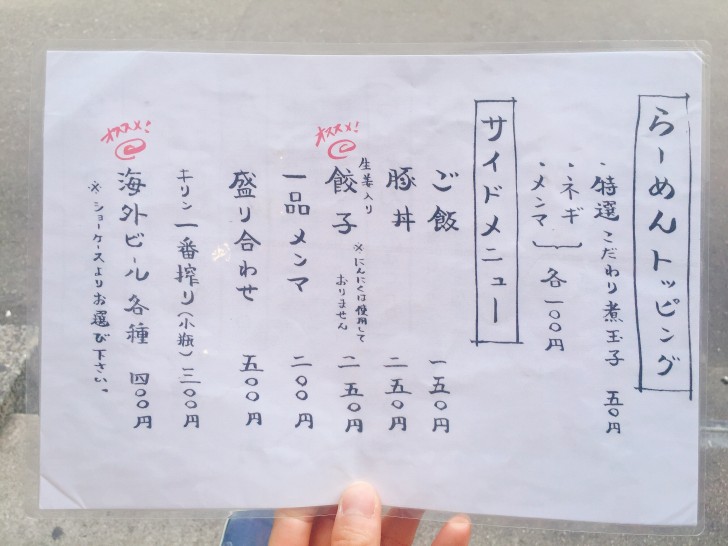 らーめんトッピング
・特選 こだわり煮玉子 五〇円
・ネギ
・メンマ
各一〇〇円
サイドメニュー
ご飯 一五〇円
豚丼 二五〇円
オススメ!
生姜入り
餃子 二五〇円
※にんにくは使用して
おりません
一品メンマ 二〇〇円
盛り合わせ 五〇〇円
キリン一番搾り(小瓶)三〇〇円
オススメ!
海外ビール各種 四〇〇円
※ショーケースよりお選び下さい。